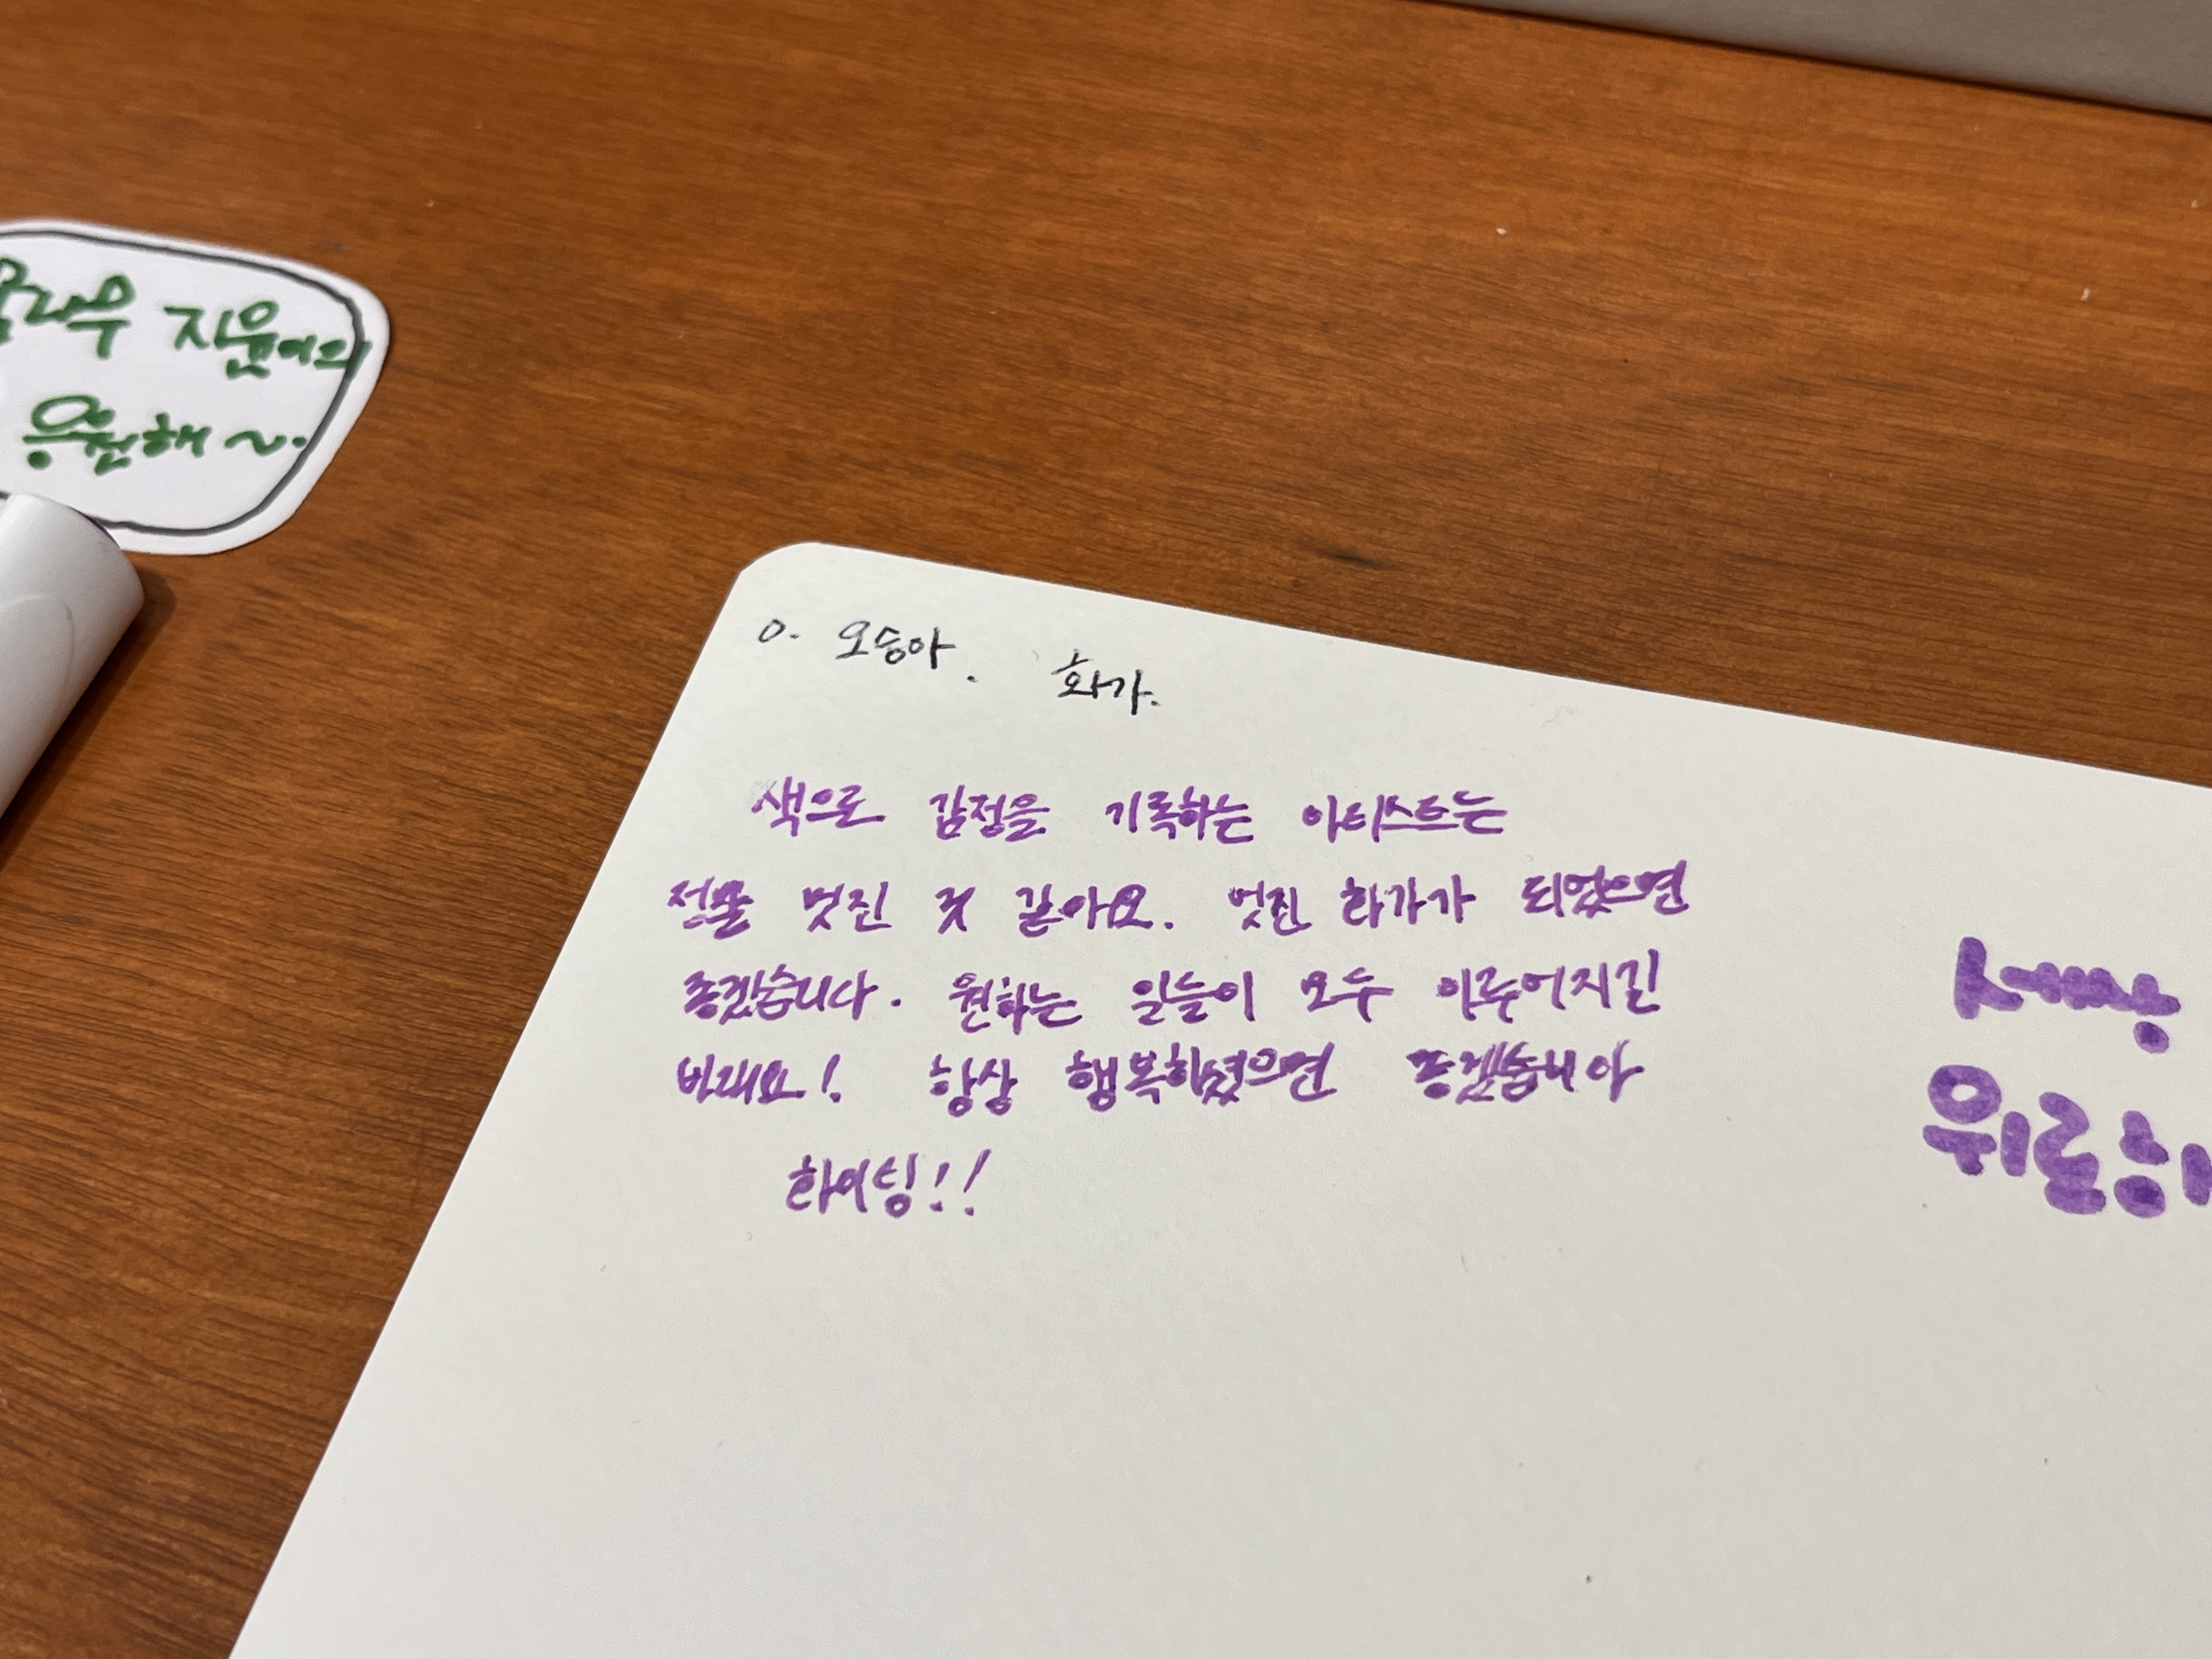 지윤이의
응원해~.
0. 오승아. 화가.
색으로 감정을 기록하는 아티스트는
정말 멋진 것 같아요. 멋진 화가가 되었으면
좋겠습니다. 원하는 일들이 모두 이루어지길
바래요! 항상 행복하셨으면 좋겠습니다
화이팅!!
세상
위로